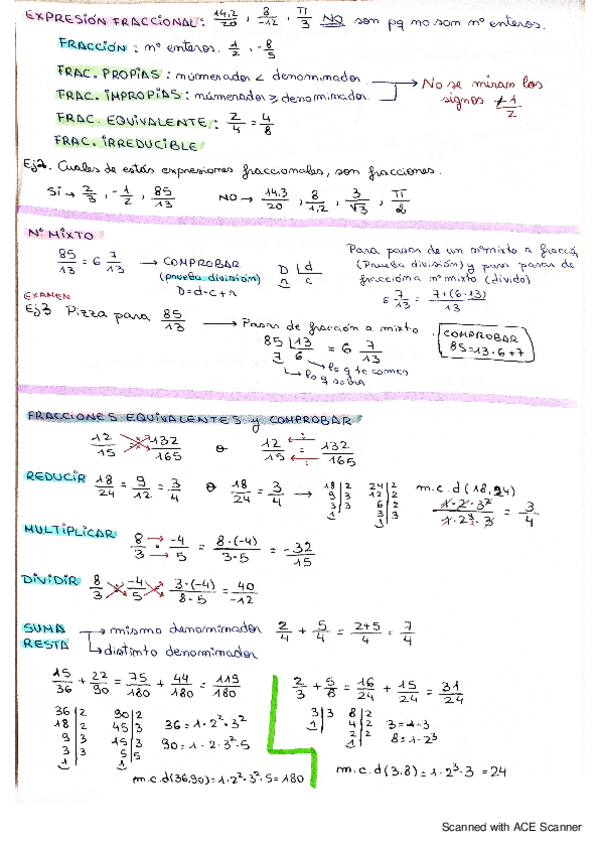 EXPRESIÓN FRACCIONAL: 14.2/20, 8/-12, π/3 NO son pq no son nº enteros.
FRACCIÓN: nº enteros. 1/2, -8/5
FRAC. PROPIAS: númerador < denominador
FRAC. IMPROPIAS: númerador ≥ denominador
No se miran los signos ≠ 1/2
FRAC. EQUIVALENTE: 2/4 = 4/8
FRAC. IRREDUCIBLE
Ej2. Cuales de estás expresiones fraccionales, son fracciones.
SÍ → 2/3, -1/2, 85/13 NO → 14.3/20, 8/1,2, 3/√3, π/2
Nº MIXTO
85/13 = 6 7/13 → COMPROBAR (prueba división) D=d·c+r
D | d
r c
Para pasar de un nº mixto a fracción
(Prueba división) y para pasar de
fracción a nº mixto (divido)
6 7/13 = 7+(6·13)/13
EXAMEN
Ej3 Pizza para 85/13 → Pasar de fracción a mixto.
85 | 13 = 6 7/13
7 6
lo q te comes
lo q sobra
COMPROBAR
85=13·6+7
FRACCIONES EQUIVALENTES y COMPROBAR
12/15 = 132/165 o 12/15 = 132/165
REDUCIR 18/24 = 9/12 = 3/4 o 18/24 = 3/4 →
18 | 2
9 | 3
3 | 3
1
24 | 2
12 | 2
6 | 2
3 | 3
1
m.c.d (18,24)
1·2·3²/1·2³·3 = 3/4
MULTIPLICAR 8/3 · -4/5 = 8·(-4)/3·5 = -32/15
DIVIDIR 8/3 : -4/5 = 3·(-4)/8·5 = 40/-12
SUMA
RESTA
mismo denominador 2/4 + 5/4 = 2+5/4 = 7/4
distinto denominador
15/36 + 22/90 = 75/180 + 44/180 = 119/180
36 | 2
18 | 2
9 | 3
3 | 3
1
90 | 2
45 | 3
15 | 3
5 | 5
1
36=1·2²·3²
90=1·2·3²·5
m.c.d(36,90)=1·2²·3²·5=180
2/3 + 5/8 = 16/24 + 15/24 = 31/24
3 | 3
1
8 | 2
4 | 2
2 | 2
1
3=1·3
8=1·2³
m.c.d(3.8)=1·2³·3=24
Scanned with ACE Scanner